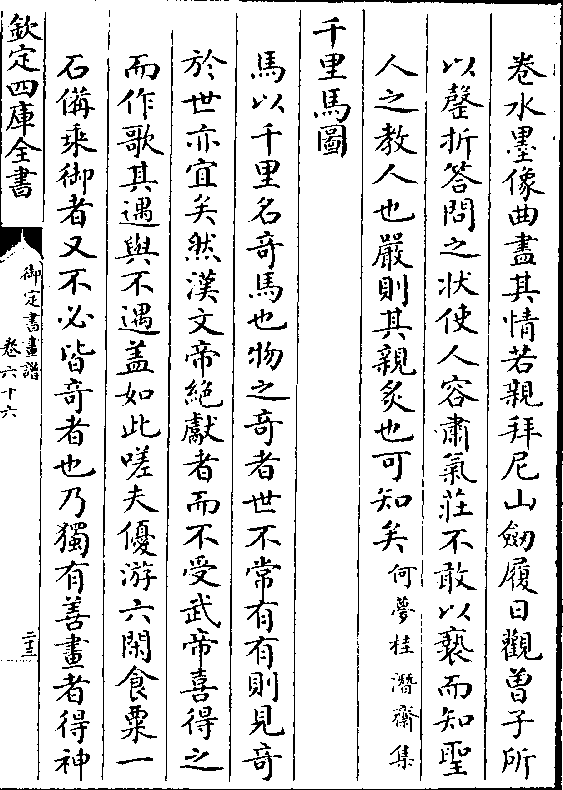 卷水墨像曲盡其情若親拜尼山劒履日觀曽子所
以罄折答問之状使人容肅氣莊不敢以䙝而知聖
人之教人也嚴則其親炙也可知矣何夢桂潛齋集
千里馬圖
馬以千里名竒馬也物之竒者世不常有有則見竒
於世亦宜矣然漢文帝絶獻者而不受武帝喜得之
而作歌其遇與不遇盖如此嗟夫優游六閑食粟一
石備乘御者又不必皆竒者也乃獨有善畫者得神
欽定四庫全書
御定書畫譜
卷六十六
二十三